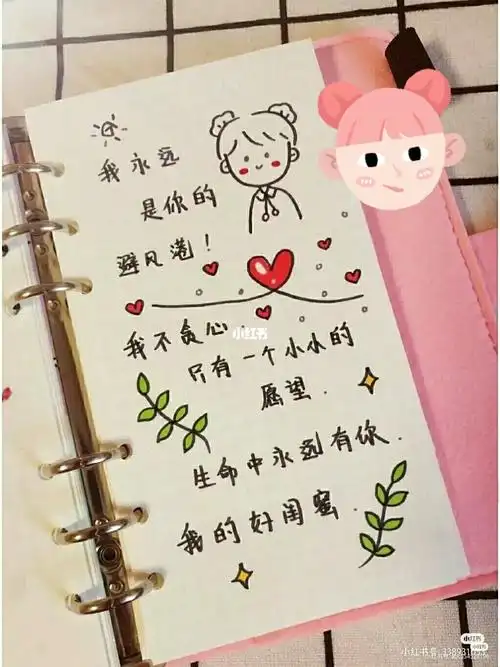 我永远
是你的
避风港!
我不贪心
小红书
只有一个小小的
愿望.
生命中永远有你.
我的好闺蜜.
小红书